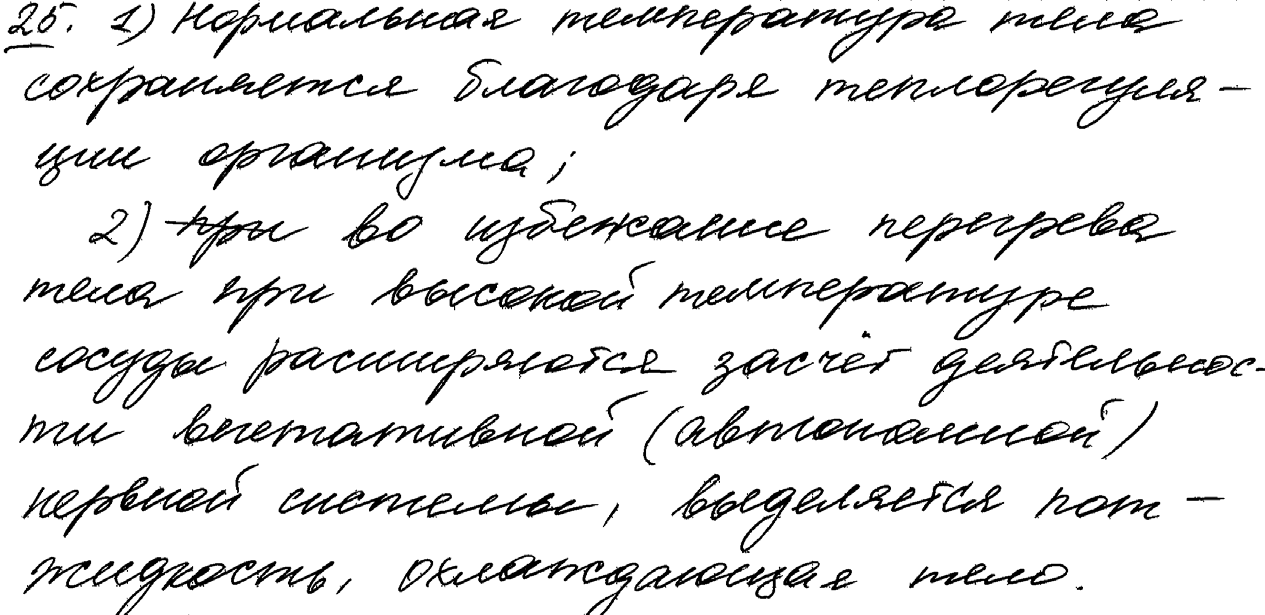 25. 1) Нормальная температура тела
сохраняется благодаря теплорегуля-
ции организма;
2) при во избежание перегрева
тела при высокой температуре
сосуды расширяются засчёт деятельнос-
ти вегетативной (автономной)
нервной системы, выделяется пот -
жидкость, охлаждающая тело.